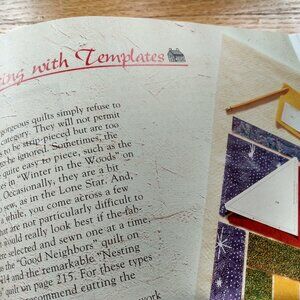 ing with Templates
gorgeous quilts simply refuse to
category. They will not permit
to be strip-pieced but are too
be ignored. Sometimes, the
quite easy to piece, such as the
in "Winter in the Woods" on
Occasionally, they are a bit
ew, as in the Lone Star. And,
a while, you come across a few
at are not particularly difficult to
would really look best if the fab-
er selected and sewn one at a time,
as the "Good Neighbors" quilt on
14 and the remarkable "Nesting
" quilt on page 215. For these types
recommend cutting the
work